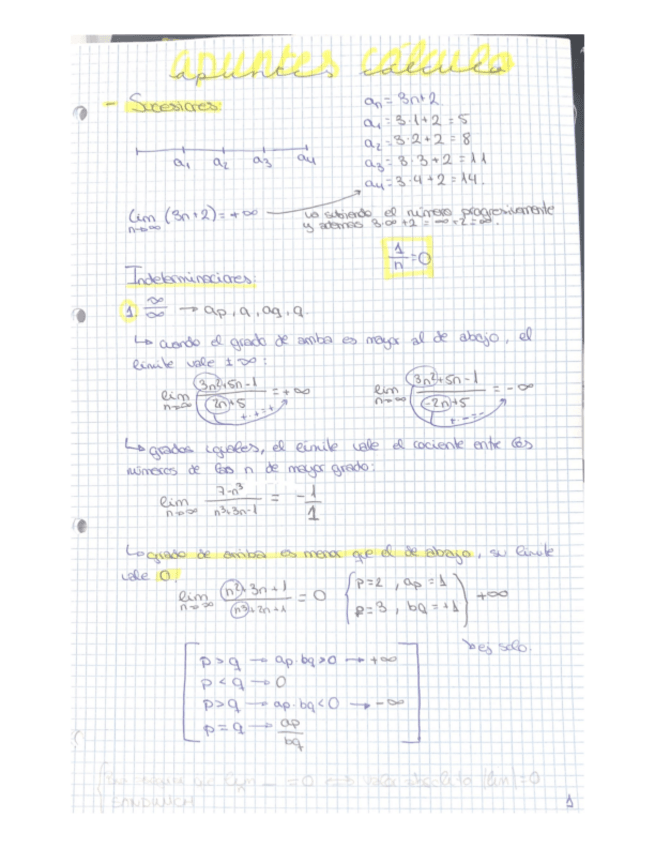 apuntes cálculo
- Sucesiones:
an = 3n+2
a1 = 3·1+2 = 5
a2 = 3·2+2 = 8
a3 = 3·3+2 = 11
a4 = 3·4+2 = 14.
a1 a2 a3 a4
lim n→∞ (3n+2) = +∞
va subiendo el número progresivamente
y además 3·∞+2 = ∞+2 = ∞.
1/n = 0
Indeterminaciones:
1. ∞/∞ → ap, q, aq, q.
↳ cuando el grado de arriba es mayor al de abajo, el
límite vale ±∞:
lim n→∞ (3n²+5n-1)/(2n+5) = +∞
+·+=+
lim n→∞ (3n²+5n-1)/(-2n+5) = -∞
+·-=-
↳ grados iguales, el límite vale el cociente entre los
números de las n de mayor grado:
lim n→∞ (7-n³)/(n³+3n-1) = -1/1
↳ grado de arriba es menor que el de abajo, su límite
vale 0.
lim n→∞ (n²+3n+1)/(n³+2n+1) = 0 {p=2, ap=1
p=3, bq=+1} +∞
ej solo.
p>q → ap·bq>0 → +∞
p<q → 0
p>q → ap·bq<0 → -∞
p=q → ap/bq
= 0 |lim| = 0
SANDWICH
1